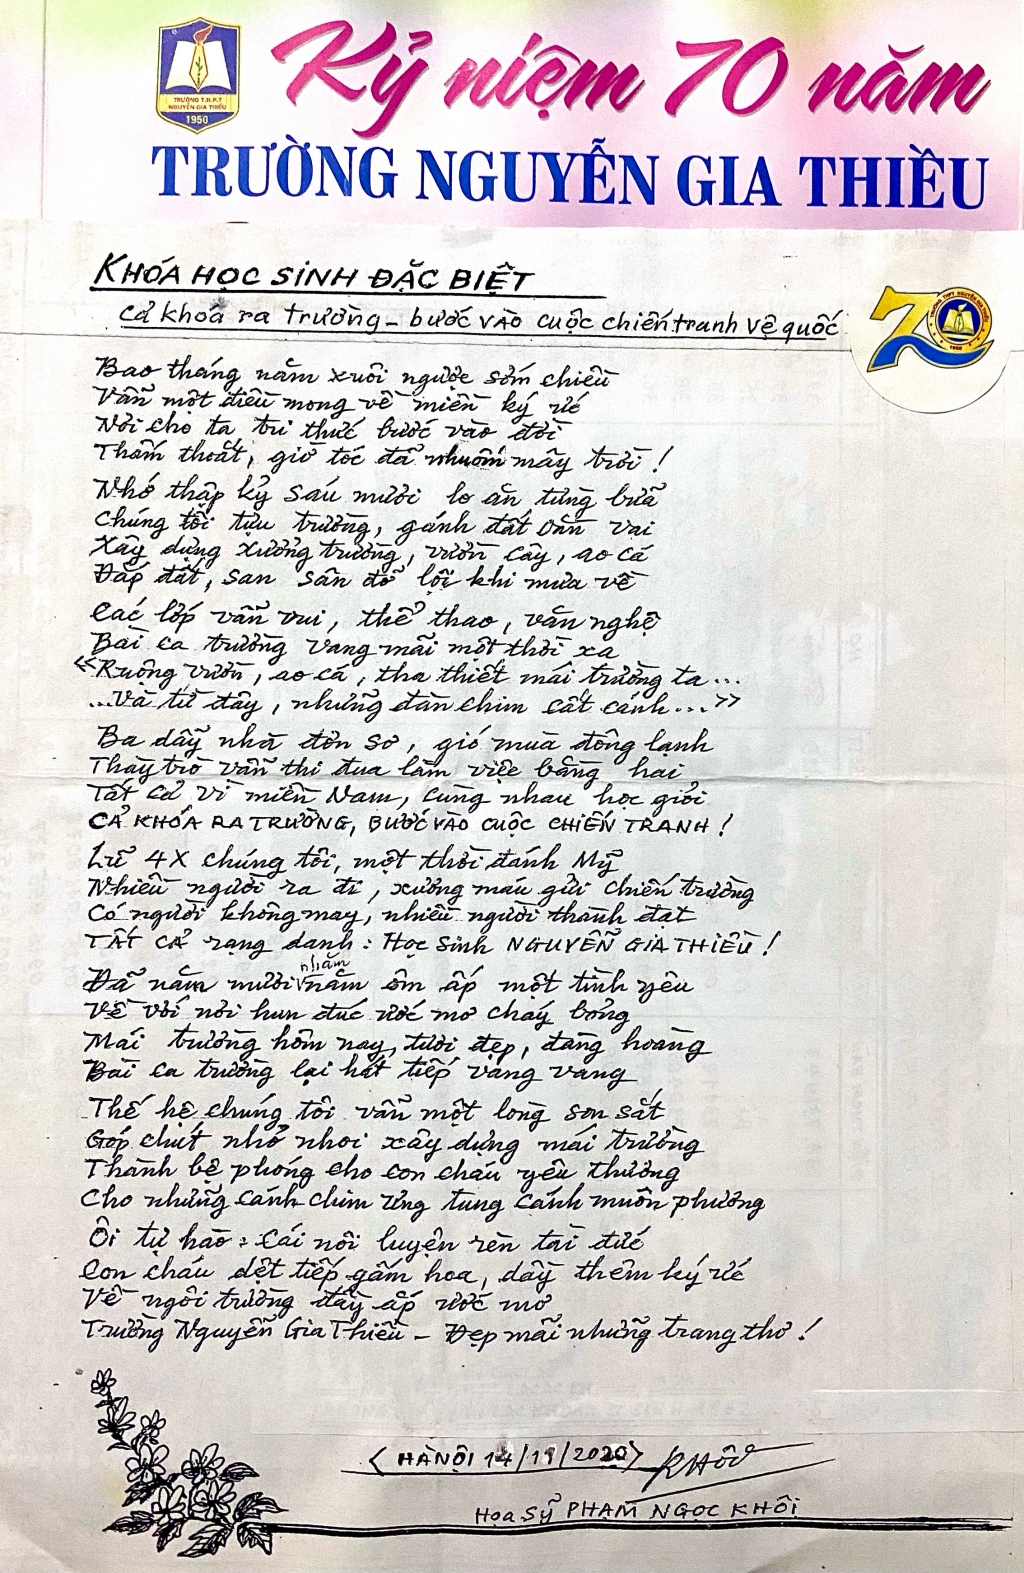 Kỷ niệm 70 năm
TRƯỜNG T.H.P.T
NGUYỄN GIA THIỀU
1950
TRƯỜNG NGUYỄN GIA THIỀU
KHÓA HỌC SINH ĐẶC BIỆT
Cả khóa ra trường - bước vào cuộc chiến tranh vệ quốc
70
TRƯỜNG THPT NGUYỄN GIA THIỀU
1950
Bao tháng năm xuôi ngược sớm chiều
Vẫn một điều mong về miền ký ức
Nơi cho ta tri thức bước vào đời
Thấm thoắt, giờ tóc đã nhuốm mây trời !
Nhớ thập kỷ sáu mươi lo ăn từng bữa
Chúng tôi tựu trường, gánh đất oằn vai
Xây dựng xưởng trường, vườn cây, ao cá
Đắp đất, san sân đỡ lội khi mưa về
Các lớp vẫn vui, thể thao, văn nghệ
Bài ca trường vang mãi một thời xa
"Ruộng vườn, ao cá, tha thiết mái trường ta...
...Và từ đây, những đàn chim cất cánh..."
Ba dãy nhà đơn sơ, gió mùa đông lạnh
Thầy trò vẫn thi đua làm việc bằng hai
Tất cả vì miền Nam, cùng nhau học giỏi
CẢ KHÓA RA TRƯỜNG, BƯỚC VÀO CUỘC CHIẾN TRANH !
Lứa 4X chúng tôi, một thời đánh Mỹ
Nhiều người ra đi, xương máu gửi chiến trường
Có người không may, nhiều người thành đạt
TẤT CẢ rạng danh : Học sinh NGUYỄN GIA THIỀU !
Đã năm mươi nhăm năm ôm ấp một tình yêu
Về với nơi hun đúc ước mơ cháy bỏng
Mái trường hôm nay, tươi đẹp, đàng hoàng
Bài ca trường lại hát tiếp vang vang
Thế hệ chúng tôi vẫn một lòng son sắt
Góp chút nhỏ nhoi xây dựng mái trường
Thành bệ phóng cho con cháu yêu thương
Cho những cánh chim ưng tung cánh muôn phương
Ôi tự hào : Cái nôi luyện rèn tài đức
Con cháu dệt tiếp gấm hoa, dầy thêm ký ức
Về ngôi trường đầy ắp ước mơ
Trường Nguyễn Gia Thiều - Đẹp mãi những trang thơ !
<HÀNỘI 14/11/2020> KHÔI
Họa Sỹ PHẠM NGỌC KHÔI